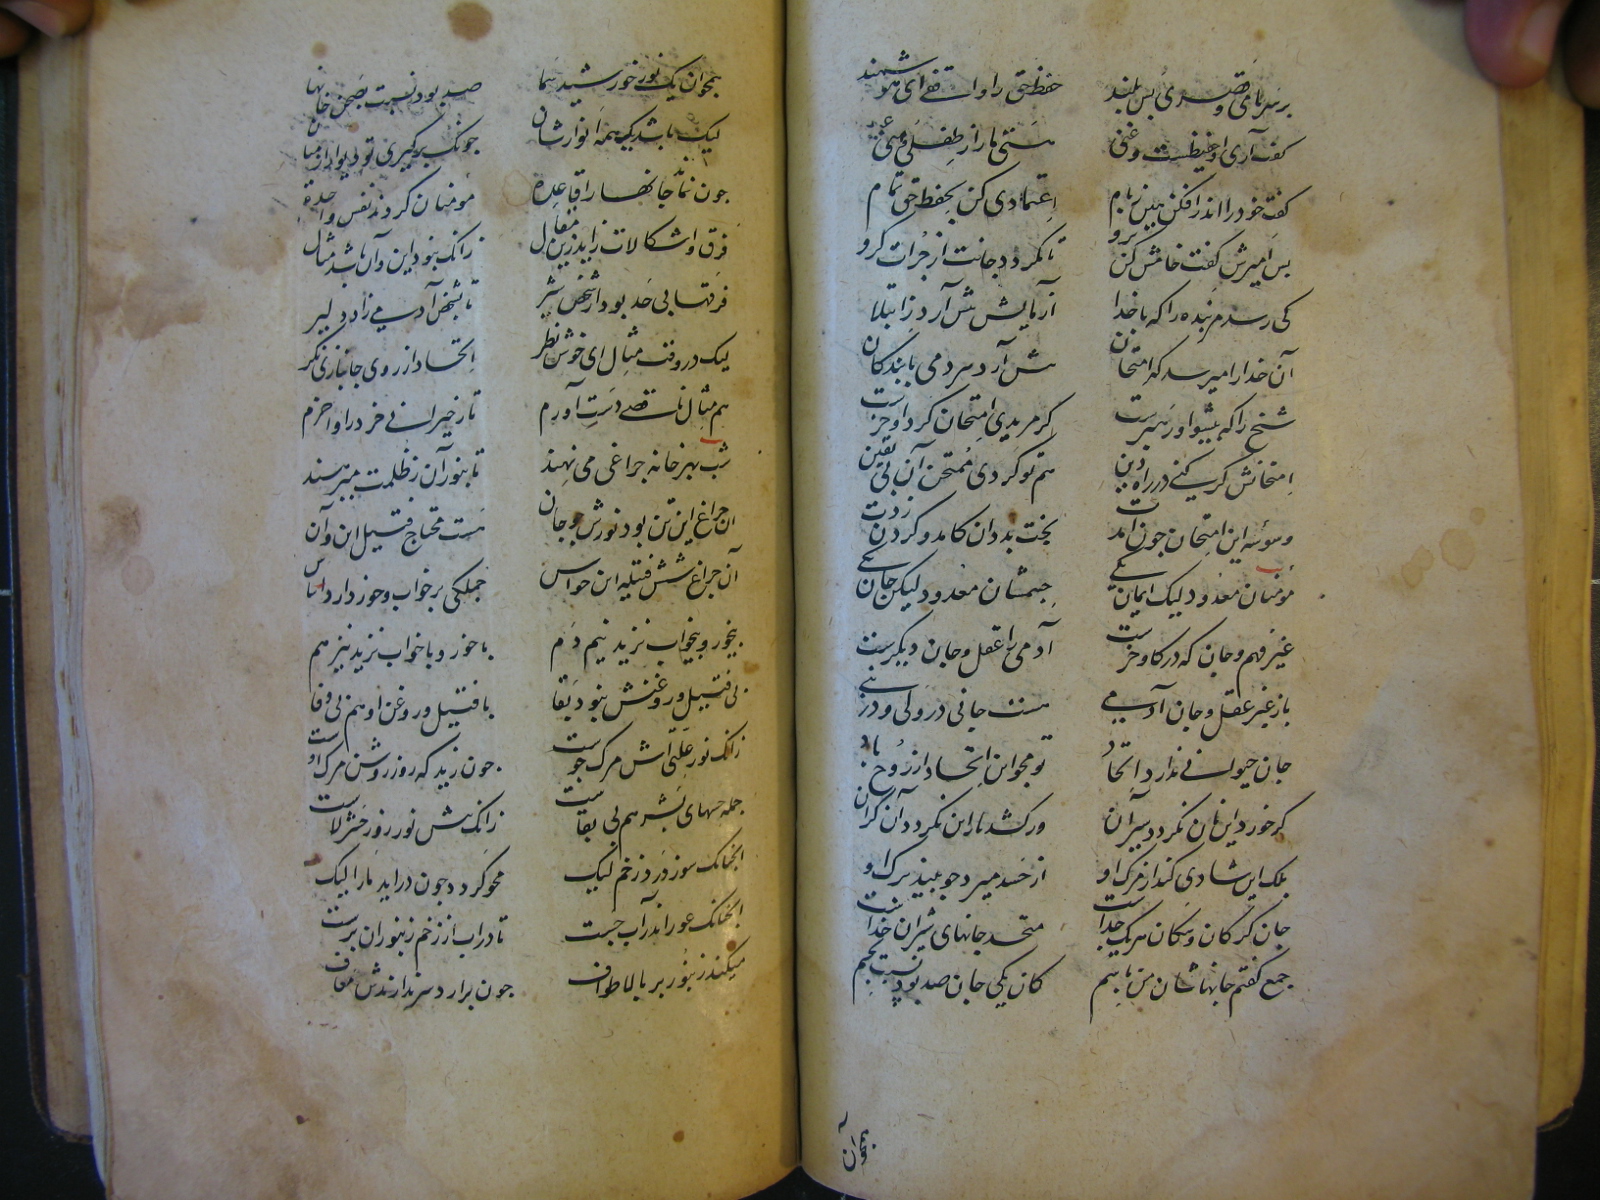 بر سر بامی و قصری بس بلند حفظ حق را واقفی ای هوشمند
گفت آری او حفیظست و غنی هستی ما را ز طفلی و منی
گفت خود را اندر افکن هین ز بام اعتمادی کن بحفظ حق تمام
بس امیرش گفت خامش کن برو تا نگردد جانت از جرات گرو
کی رسد مر بنده را که با خدا آزمایش پیش آرد ز ابتلا
آن خدا را میرسد که امتحان پیش آرد هر دمی با بندگان
شیخ را که پیشوا و رهبرست گر مریدی امتحان کرد او خرست
امتحانش گر کنی در راه دین هم تو گردی ممتحن ای بی یقین
وسوسه این امتحان جون آمدت بخت بد دان کامد و گردن زدت
مؤمنان معدود لیک ایمان یکی جسمشان معدود لیکن جان یکی
غیر فهم و جان که در گاو و خرست آدمی را عقل و جان دیگرست
باز غیر عقل و جان آدمی هست جانی در ولی و در نبی
جان حیوانی ندارد اتحاد تو مجو این اتحاد از روح باد
گر خورد این نان نگردد سیر آن ور کشد بار این نگردد آن گران
بلک این شادی کند از مرگ او از حسد میرد جو بیند برگ او
جان گرگان و سگان هر یک جداست متحد جانهای شیران خداست
جمع گفتم جانهاشان من باسم کان یکی جان صد بود نسبت بجسم
همجو آن
همجو آن یک نور خورشید سما صد بود نسبت بصحن خانها
لیک باشد یک همه انوارشان جونک برگیری تو دیوار از میان
جون نماند جانها را قاعده مومنان گردند نفس واحده
فرق و اشکالات زاید زین مقال زانک نبود این و آن باشد مثال
فرقها بی حد بود از شخص شیر تا بشخص آدمی زاد دلیر
لیک در وقت مثال ای خوش نظر اتحاد از روی جانبازی نگر
هم مثال ناقصی دست آورم تا ز حیرانی خرد را وا خرم
شب بهر خانه جراغی می نهند تا بنور آن ز ظلمت میرهند
آن جراغ این تن بود نورش جو جان هست محتاج فتیل این و آن
آن جراغ شش فتیله این حواس جملگی بر خواب و خور دارد اساس
بیخور و بیخواب نزید نیم دم با خور و با خواب نزید نیز هم
بی فتیل و روغنش نبود بقا با فتیل و روغن او هم بی وفا
زانک نور علتی اش مرگ جوست جون زید که روز روشن مرگ اوست
جمله حسهای بشر هم بی بقاست زانک پیش نور روز حشر لاست
انجنانک سوز و درد زخم کیک محو گردد جون دراید مار الیک
انجنانک عور اندر آب جست تا در آب از زخم زنبوران برست
میکند زنبور بر بالا طواف جون برارد سر ندارندش معاف